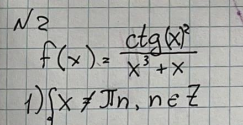 N2
f(x) = ctg(x)² / x³ + x
1) { x ≠ πn, n ∈ Z